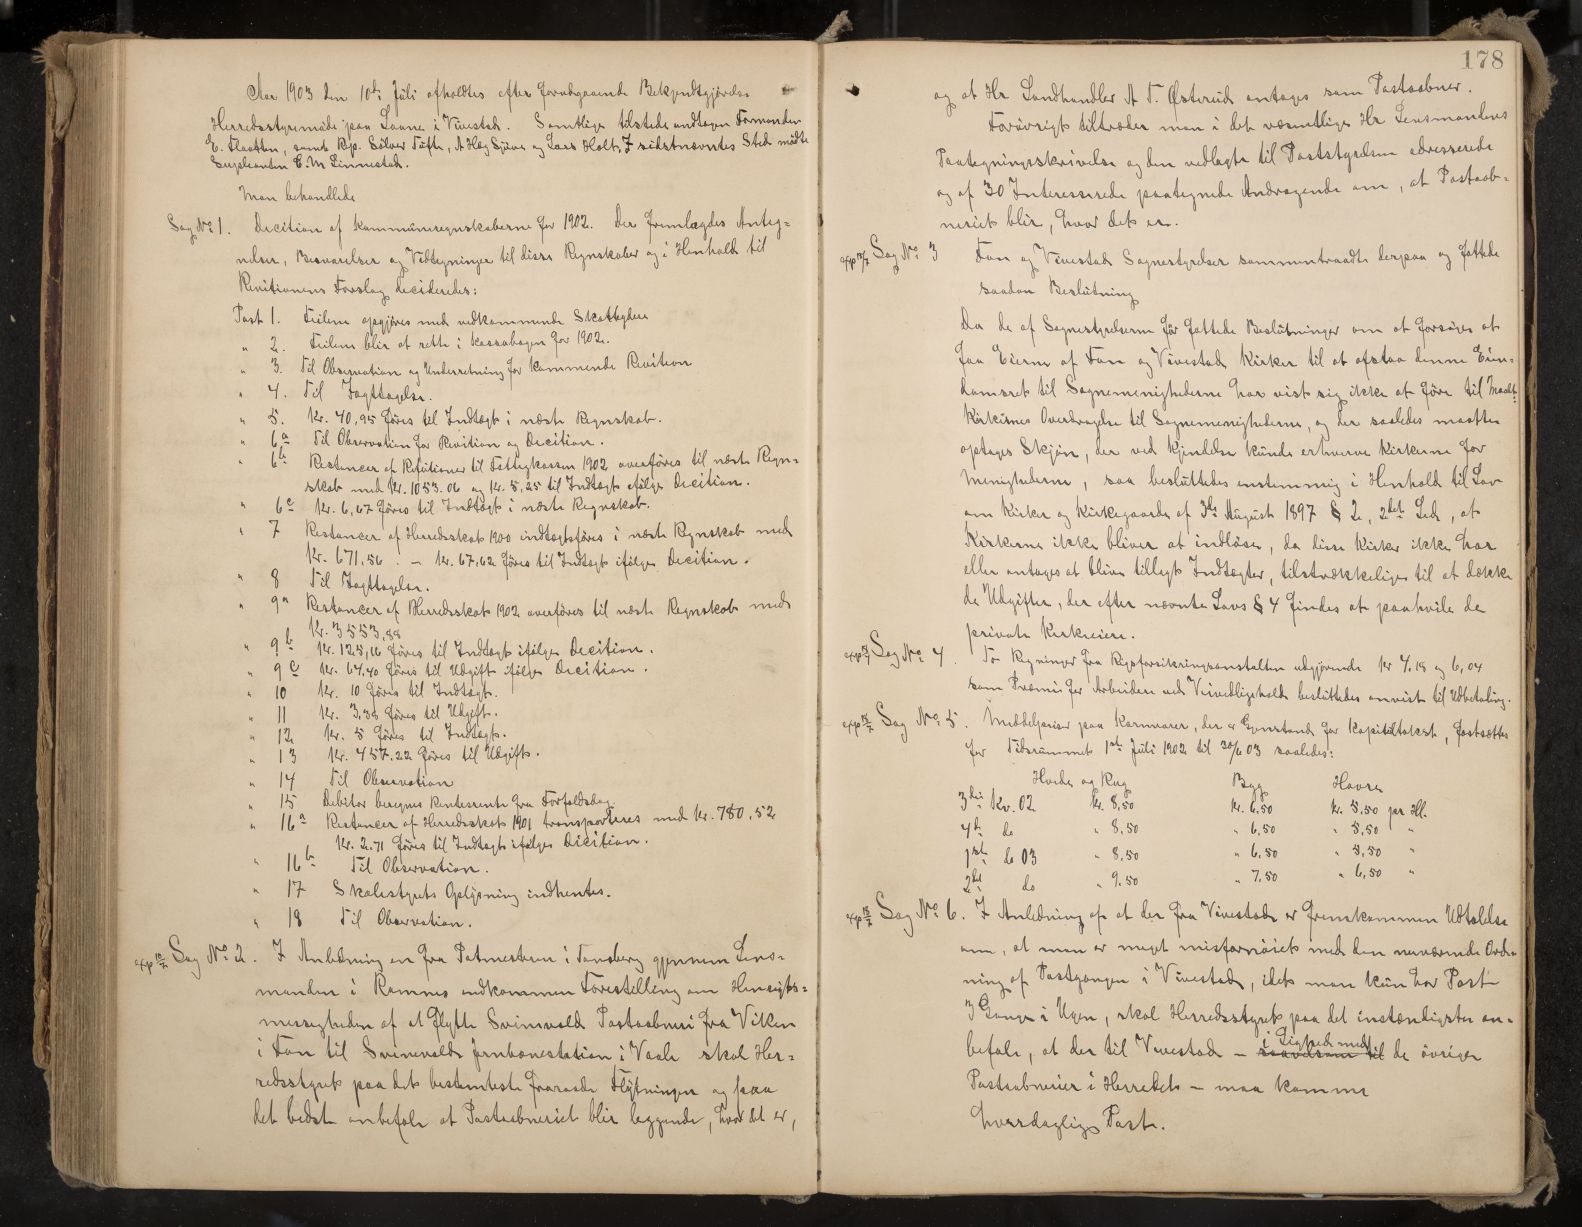 Aar 1903 den 10de Juli afholdtes efter forudgaaende Bekjendtgjørelse
Herredsstyremøde paa Laane i Vivestad. Samtlige tilstede undtagen Formanden
E. Flaatten, samt Rep. Silver Tufte, A Hæg Sjuve og Lars Holt. I sidstnævntes Sted mødte
Supleanten E. M. Linnestad.
Man behandlede
Sag No 1. Decition af Kommuneregnskaberne for 1902. Der fremlagdes Anteg-
nelser, Besvarelser og Vedtegninger til disse Regnskaber og i Henhold til
Revitionens Forslag decideredes:
Post 1. Feilene opgjøres med vedkommende Skatteydere
" 2. Feilene blir at rette i Kassabogen for 1902.
" 3. Til Observation og Underretning for kommende Revition
" 4. Til Iagttagelse.
" 5. Kr. 40,95 føres til Indtægt i næste Regnskab.
" 6a Til Observation for Revition og Decition.
" 6b Restancer af Refutioner til Fattigkassen 1902 overføres til næste Regn-
skab med Kr. 1053.06 og Kr. 5,25 til Indtægt ifølge Decition.
" 6c Kr. 6,67 føres til Indtægt i næste Regnskab.
" 7 Restancer af Herredsskat 1900 indtægtsføres i næste Regnskab med
Kr. 671,56. – Kr. 67,62 føres til Indtægt ifølge Decition.
" 8 Til Iagttagelse.
" 9a Restancer af Herredsskat 1902 overføres til næste Regnskab med
Kr. 3553,88
" 9b Kr. 125,16 føres til Indtægt ifølge Decition.
" 9c Kr. 64,40 føres til Udgift ifølge Decition.
" 10 Kr. 10 føres til Indtægt.
" 11 Kr. 3,38 føres til Udgift.
" 12 Kr. 5 føres til Indtægt.
" 13 Kr. 457.22 føres til Udgift.
" 14 Til Observation
" 15 Debitor beregnes Renterente fra Forfaldsdag.
" 16a Restancer af Herredsskat 1901 transporteres med Kr. 780,52
Kr. 2.71 føres til Indtægt ifølge Decition.
" 16b Til Observation.
" 17 Skolestyrets Oplysning indhentes.
" 18 Til Observation.
exp Sag No 2. I Anledning en fra Postmesteren i Tønsberg gjennem Lens-
manden i Ramnes indkommen Forestilling om Hensigts-
messigheden af at flytte Svinevolds Postaabneri fra Viken
i Fon til Svinevolds Jernbanestation i Vaale skal Her-
redsstyret paa det bestemteste fraraade Flytningen og paa
det bedste anbefale at Postaabneriet blir liggende, hvor det er,
178
og at Hr Landhandler A T. Østereid antages som Postaabner.
Forøvrigt tiltræder man i det væsentlige Hr Lensmandens
Paategningsskrivelse og den vedlagte til Poststyrelsen adresserede
og af 30 Interesserede paategnede Andragende om, at Postaab-
neriet blir, hvor det er.
exp Sag No 3 Fon og Vivestad Sognestyrelser sammentraadte derpaa og fattede
saadan Beslutning
Da de af Sognestyrelserne før fattede Beslutninger om at forsøge at
faa Eierne af Fon og Vivestad Kirker til at afstaa denne Eien-
domsret til Sognemenighederne har vist sig ikke at føre til Maalet:
Kirkernes Overdragelse til Sognemenighederne, og der saaledes maatte
optages Skjøn, der ved Kjendelse kunde erhverve Kirkerne for
Menighederne, saa besluttedes enstemmig i Henhold til Lov
om Kirker og Kirkegaarde af 3die August 1897 § 2, 2det Led, at
Kirkerne ikke bliver at indløse, da disse Kirker ikke har
eller antages at blive tillagt Indtægter, tilstrækkelige til at dække
de Udgifter, der efter nævnte Lovs § 4 findes at paahvile de
private Kirkeeiere.
exp Sag No 4. To Regninger fra Rigsforsikringsanstalten udgjørende Kr 4.18 og 6,04
som Præmie for Arbeidere ved Veivedligehold besluttedes anvist til Udbetaling.
exp Sag No 5. Middelpriser paa Kornvarer, der er Gjenstand for Kapiteltakst, fastsættes
for Tidsrummet 1ste Juli 1902 til 30/6 03 saaledes:
Hvede og Rug Byg Havre
3die Kv. 02 Kr. 8,50 Kr. 6.50 Kr. 5.50 pr Hl.
4de do " 8,50 " 6,50 " 5,50 "
1ste do 03 " 8,50 " 6.50 " 5,50 "
2det do " 9.50 " 7.50 " 6,50 "
exp Sag No 6. I Anledning af at der fra Vivestad er fremkommen Udtalelse
om, at man er meget misfornøiet med den nuværende Ord-
ning af Postgangen i Vivestad, idet man kun har Post
3 Gange i Ugen, skal Herredsstyret paa det indstændigste an-
befale, at der til Vivestad – saavelsom til i Lighed med de øvrige
Postaabnerier i Herredet – maa komme
hverdaglig Post.